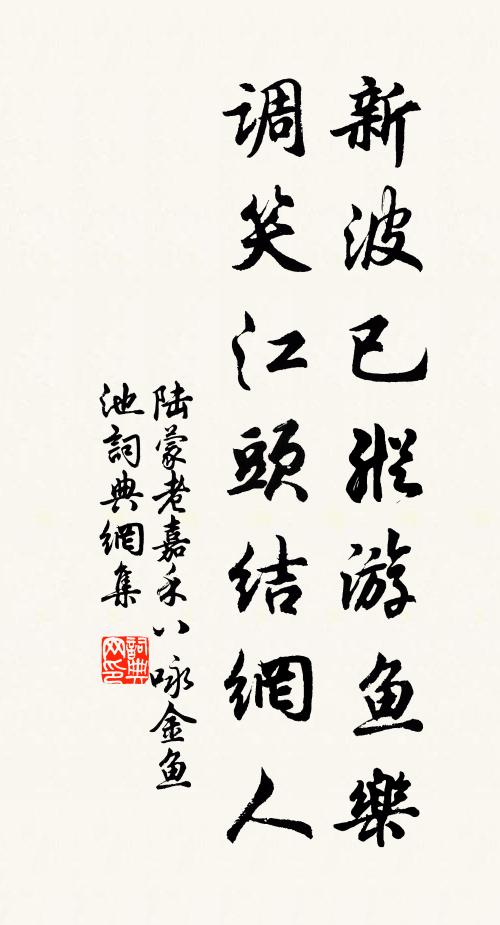 新波已縱游鱼樂
调笑江頭結網人
陆蒙老嘉禾八咏金鱼
池詞典網集
詞典
网印